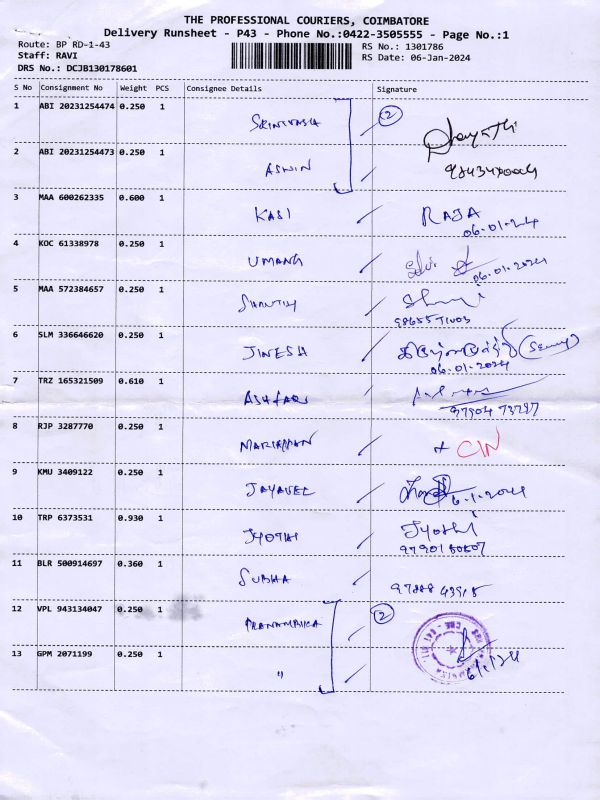 THE PROFESSIONAL COURIERS, COIMBATORE
Delivery Runsheet - P43 - Phone No.:0422-3505555 - Page No.:1
Route: BP RD-1-43
RS No.: 1301786
Staff: RAVI
RS Date: 06-Jan-2024
DRS No.: DCJB130178601
S No Consignment No Weight PCS Consignee Details Signature
1 ABI 20231254474 0.250 1 SRINIVASA 2
2 ABI 20231254473 0.250 1 ASWIN
3 MAA 600262335 0.600 1 KASI RAJA
06.01.24
4 KOC 61338978 0.250 1 UMANG
06.01.2024
5 MAA 572384657 0.250 1 SHRUTIH
6 SLM 336646620 0.250 1 JINESH
06.01.2024
7 TRZ 165321509 0.610 1
97904 73287
8 RJP 3287770 0.250 1 MARIAPPAN
9 KMU 3409122 0.250 1 JAYAVEL 6.1.2024
10 TRP 6373531 0.930 1 JYOTHI Jyothi
11 BLR 500914697 0.360 1 SUBHA
12 VPL 943134047 0.250 1 2
13 GPM 2071199 0.250 1 "
6/1/24